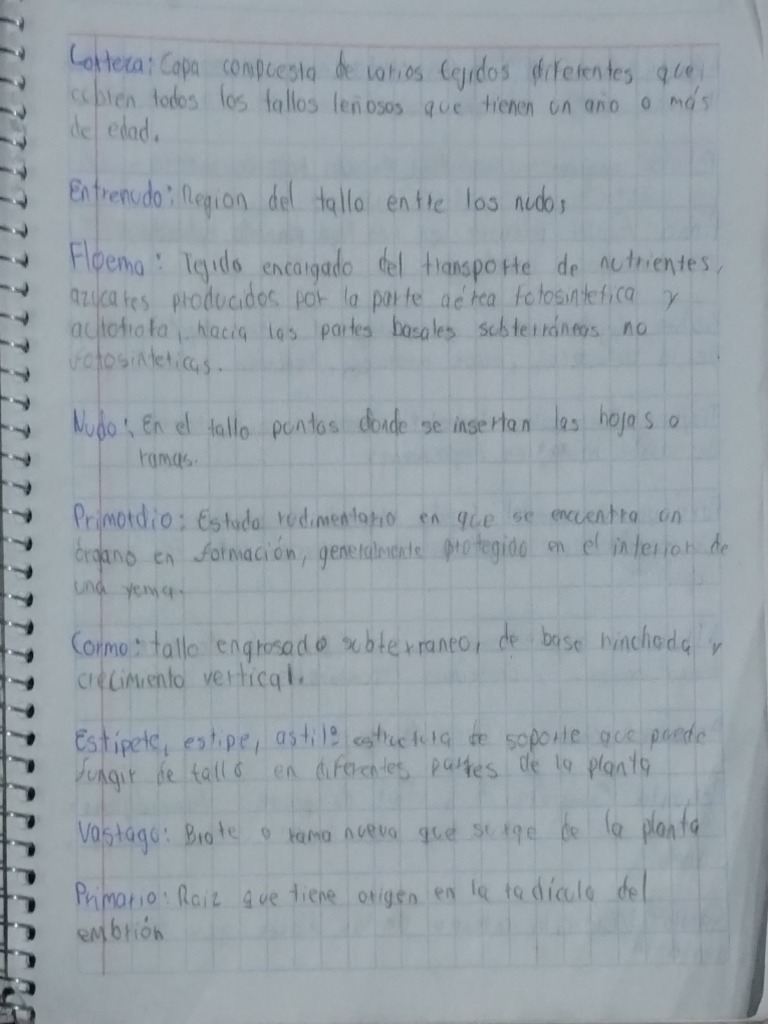 Corteza: Capa compuesta de varios tejidos diferentes que
cubren todos los tallos leñosos que tienen un año o más
de edad.
Entrenudo: Region del tallo entre los nudos
Floema: Tejido encargado del transporte de nutrientes,
azucares producidos por la parte aérea fotosintetica y
autotrofa, hacia las partes basales subterráneas no
fotosinteticas.
Nudo: En el tallo puntos donde se insertan las hojas o
ramas.
Primordio: Estado rudimentario en que se encuentra un
órgano en formación, generalmente protegido en el interior de
una yema.
Cormo: tallo engrosado subterraneo, de base hinchada y
crecimiento vertical.
Estípete, estipe, astil: estructura de soporte que puede
fungir de tallo en diferentes partes de la planta
Vastago: Brote o rama nueva que surge de la planta
Primario: Raiz que tiene origen en la radícula del
embrión